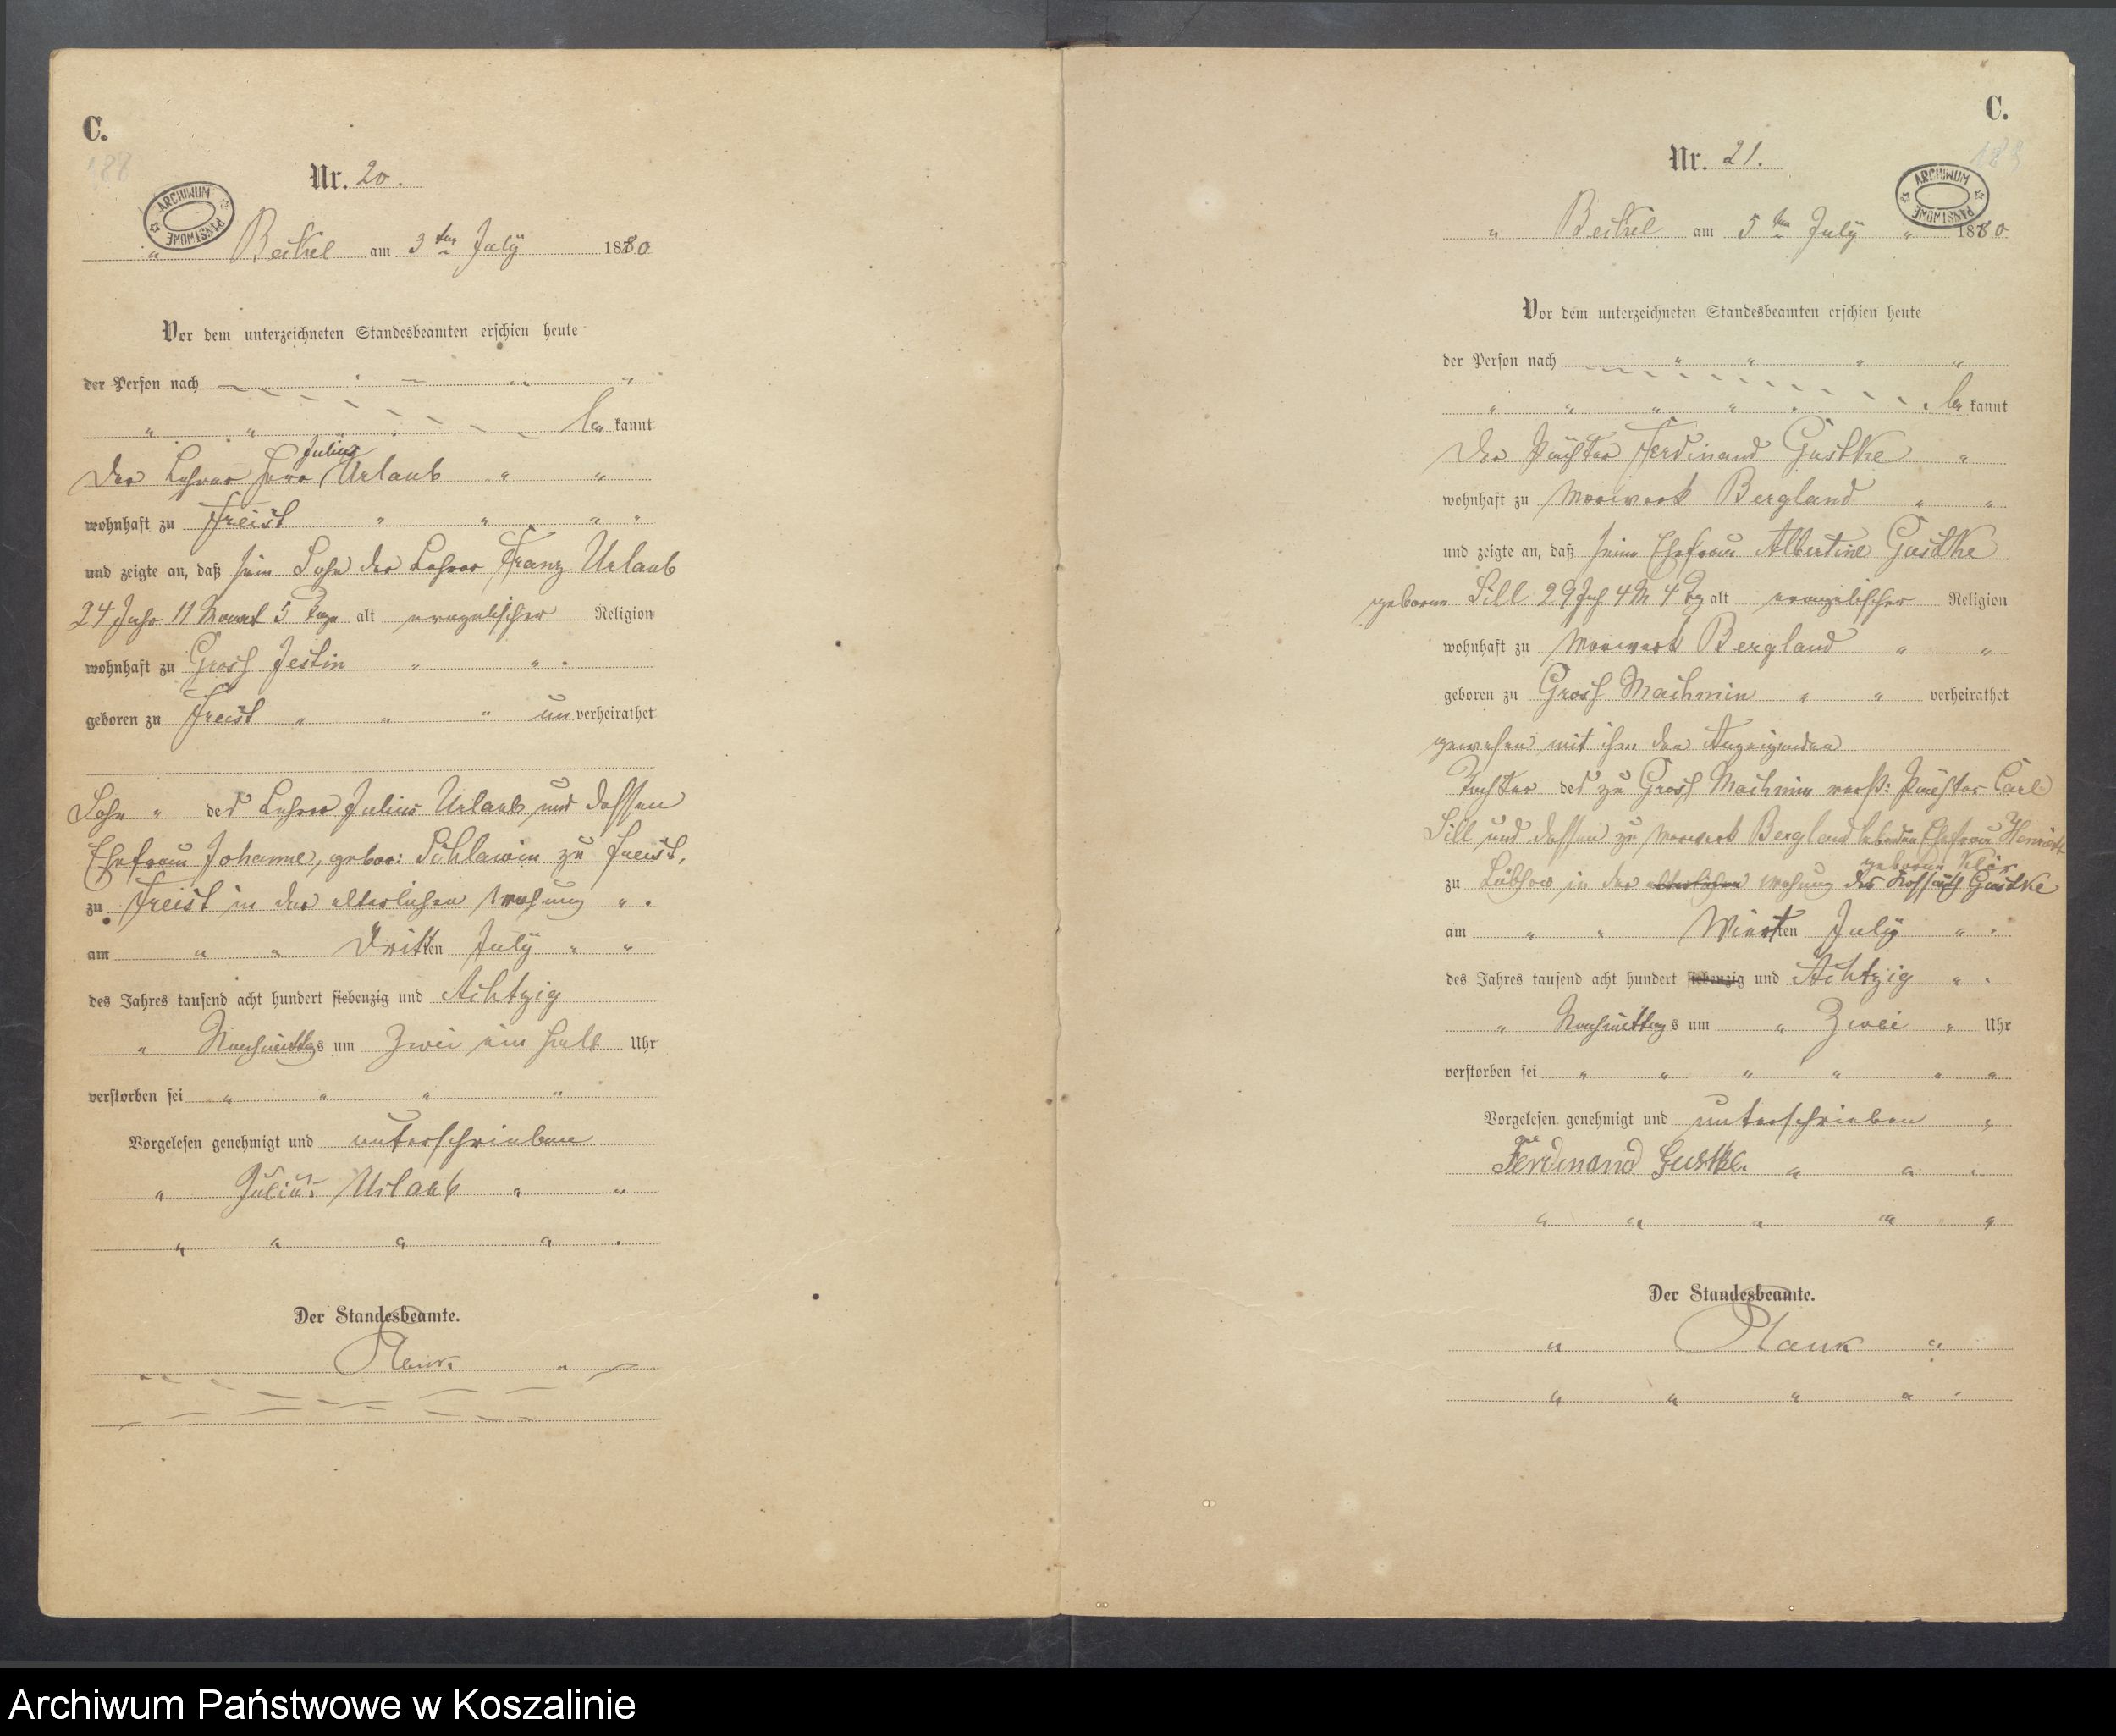 C.
188
Nr. 20.
ARCHIWUM PAŃSTWOWE
" Beckel am 3ten July 1880
Vor dem unterzeichneten Standesbeamten erschien heute
der Person nach
" " " be kannt
Julius
Der Lehrer Herr Urlaub " "
wohnhaft zu Freist " " " "
und zeigte an, daß sein Sohn der Lehrer Franz Urlaub
24 Jahr 11 Monat 5 Tage alt evangelischer Religion
wohnhaft zu Gross Jestin " "
geboren zu Freist " " " un verheirathet
Sohn " des Lehrer Julius Urlaub und dessen
Ehefrau Johanne, gebor: Schlawin zu Freist,
zu Freist in der elterlichen Wohnung "
am " " Dritten July " "
des Jahres tausend acht hundert siebenzig und Achtzig
" Nachmittags um Zwei ein halb Uhr
verstorben sei " " " "
Vorgelesen genehmigt und unterschrieben
" Julius Urlaub " "
" " " "
Der Standesbeamte.
Plank "
C.
Nr. 21.
ARCHIWUM PAŃSTWOWE
" Beckel am 5ten July " 1880
Vor dem unterzeichneten Standesbeamten erschien heute
der Person nach " " " "
" " " " be kannt
Der Pächter Ferdinand Gustke "
wohnhaft zu Vorwerk Bergland " "
und zeigte an, daß seine Ehefrau Albertine Gustke
geborene Sill 29 Jah 4 M 4 Tg alt evangelischer Religion
wohnhaft zu Vorwerk Bergland " "
geboren zu Gross Machmin " " verheirathet
gewesen mit ihm dem Anzeigenden
Tochter des zu Gross Machmin verst: Pächter Carl
Sill und dessen zu Vorwerk Bergland lebenden Ehefrau Henriette
geborene
zu Lübzow in der elterlichen Wohnung des Gustke
am " " Vierten July "
des Jahres tausend acht hundert siebenzig und Achtzig "
" Nachmittags um " Zwei " Uhr
verstorben sei " " " " " "
Vorgelesen genehmigt und unterschrieben "
Ferdinand Gustke. " "
" " " " "
Der Standesbeamte.
" Plank "
" " " "
Archiwum Państwowe w Koszalinie